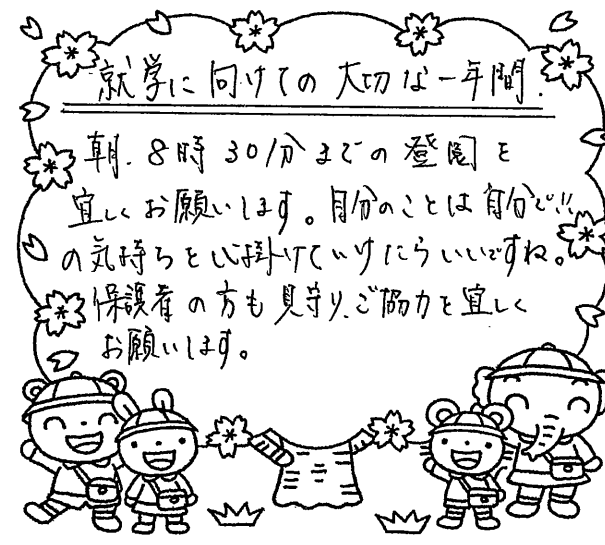 就学に向けての大切な一年間.
朝.8時30分までの登園を
宜しくお願いします。自分のことは自分で!!
の気持ちを心掛けていけたらいいですね。
保護者の方も見守り、ご協力を宜しく
お願いします。